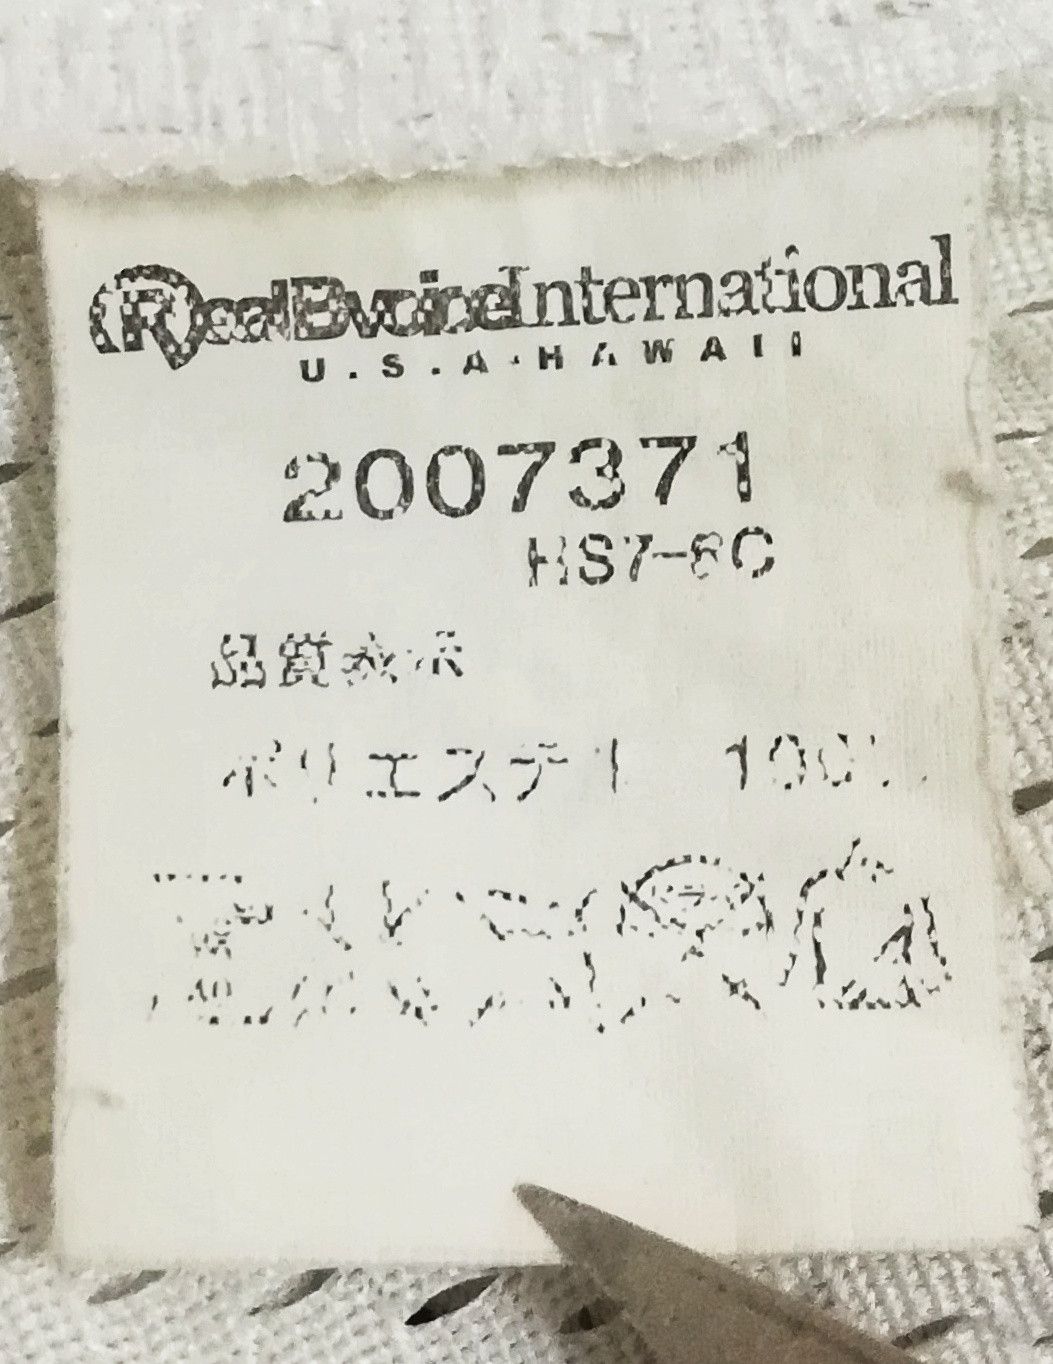 RealBvoiceInternational
U.S.A.HAWAII
2007371
HS7-6C
品質表示
ポリエステル 100%